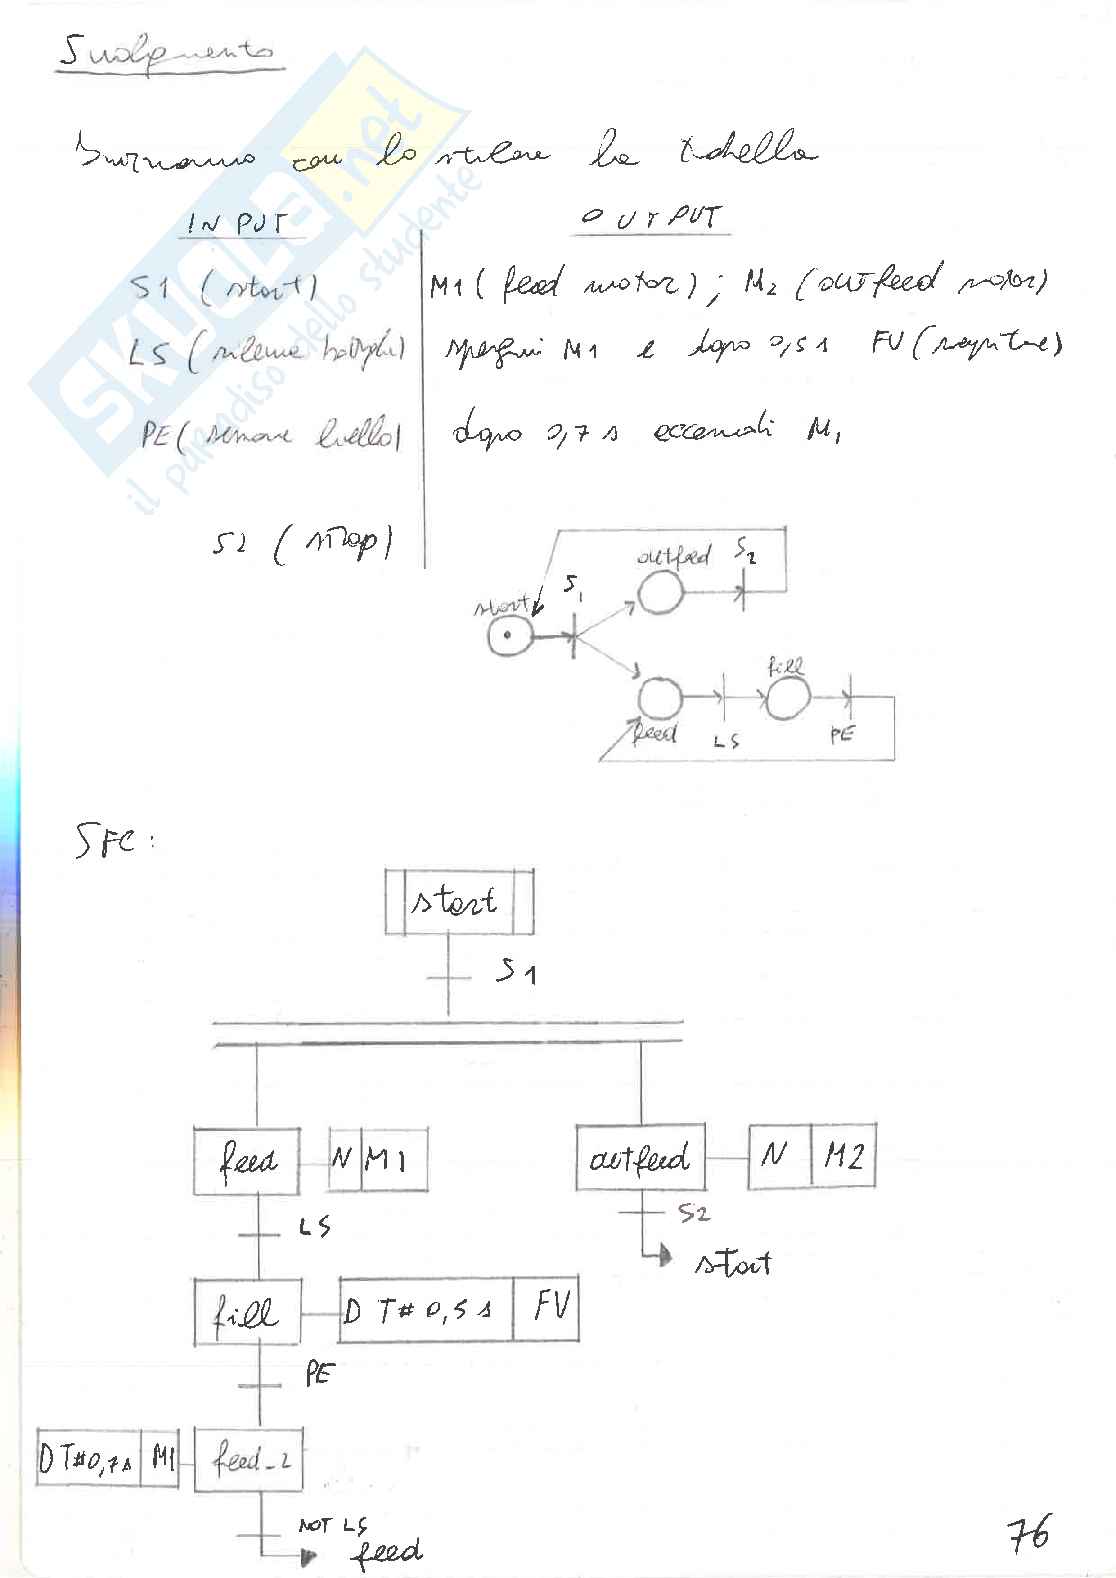 Svolgimento
Iniziamo con lo stilare la tabella
INPUT OUTPUT
S1 (start) M1 (feed motor); M2 (outfeed motor)
LS (rileva bottiglia) spegni M1 e dopo 0,5 s FV (riempitore)
PE (sensore livello) dopo 0,7 s accendi M1
S2 (stop)
SKUOLA.net
il paradiso dello studente
outfeed S2
start S1
fill
feed LS PE
SFC:
start
S1
feed N M1 outfeed N M2
LS S2
start
fill D T# 0,5 s FV
PE
D T#0,7s M1 feed_2
NOT LS
feed
76